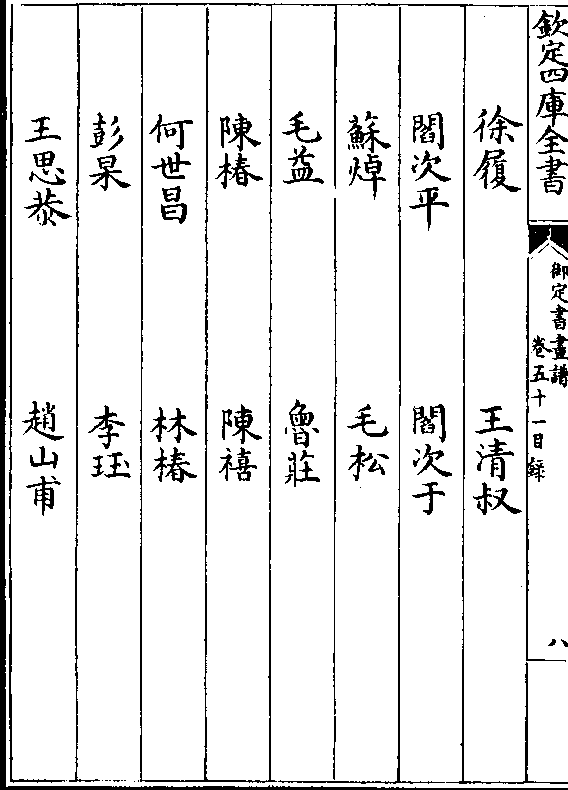 欽定四庫全書
御定書畫譜
卷五十一目録
八
徐履 王清叔
閻次平 閻次于
蘇焯 毛松
毛益 魯莊
陳椿 陳禧
何世昌 林椿
彭杲 李珏
王思恭 趙山甫